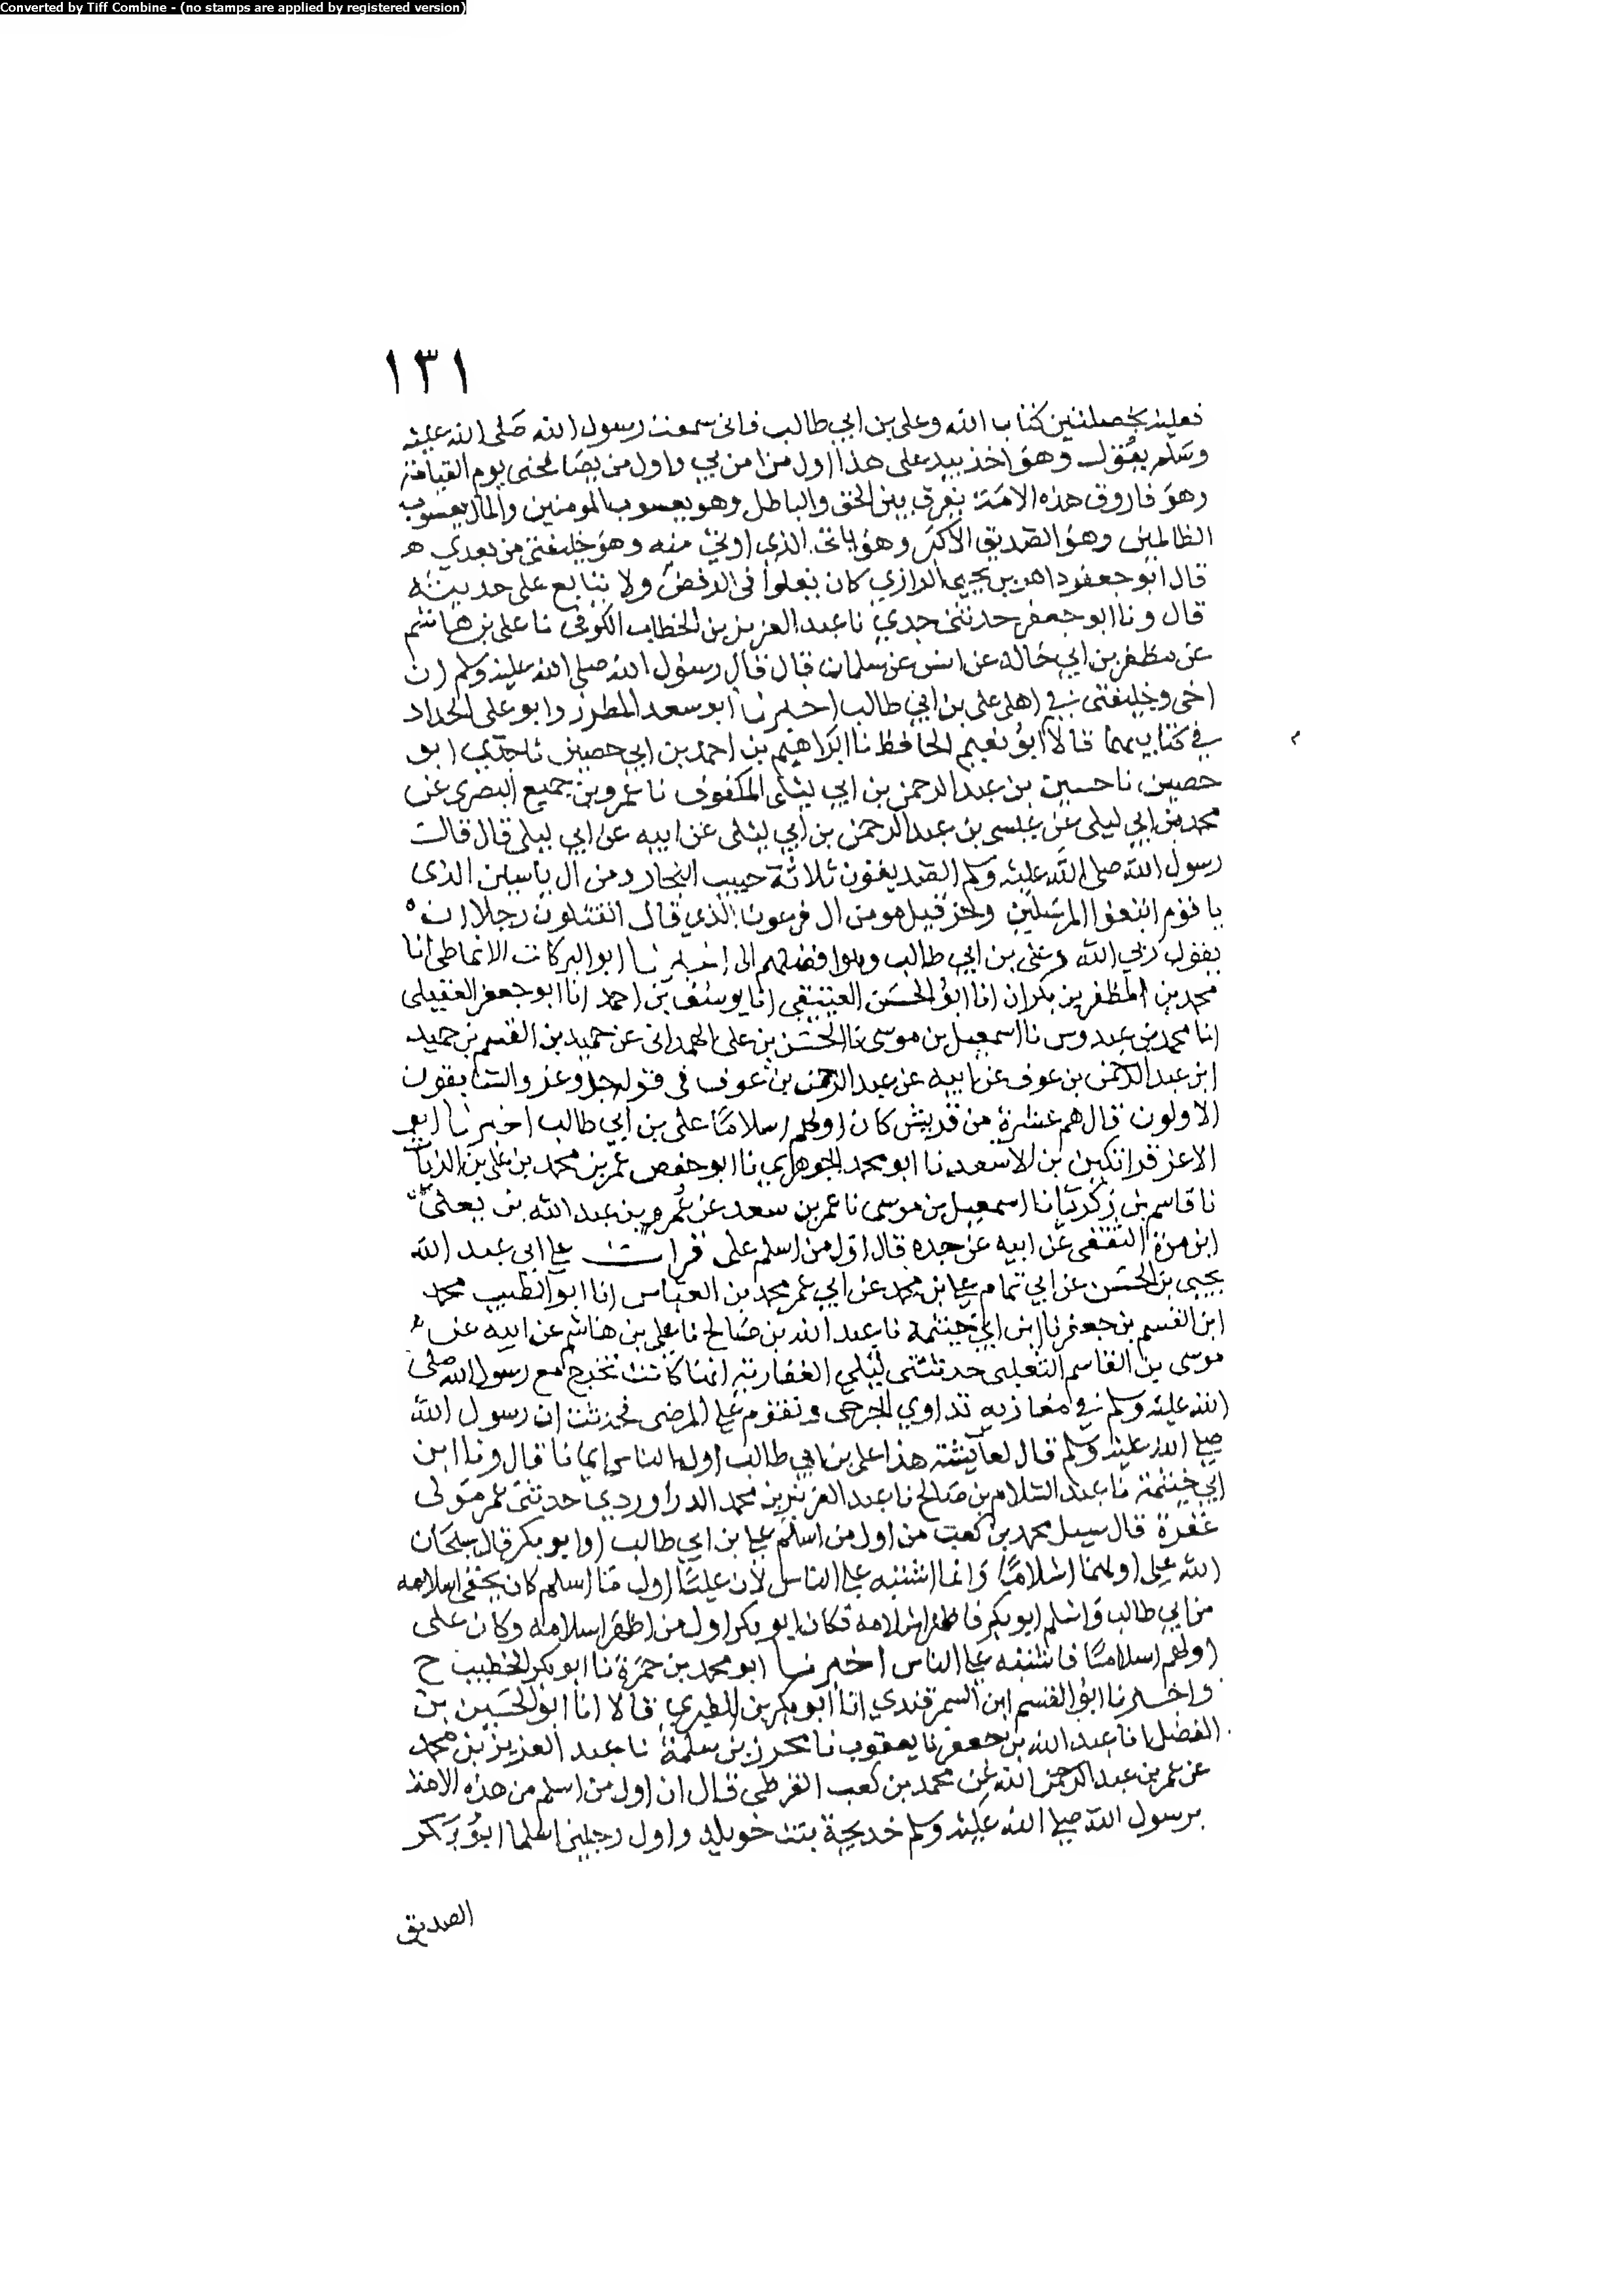 Converted by Tiff Combine - (no stamps are applied by registered version)
١٣١
فعليه بخصلتين كتاب الله وعلى بن ابي طالب فانى سمعت رسول الله صلى الله عليه
وسلم يقول وهو اخذ بيد على هذا اول من امن بي واول من يصافحنى يوم القيامة
وهو فاروق هذه الامة يفرق بين الحق والباطل وهو يعسوب المومنين والمال يعسوب
الظالمين وهو الصديق الاكبر وهو بابى الذي اوتى منه وهو خليفتى من بعدي ه
قال ابو جعفر داهر بن يحيى الرازي كان يغلوا فى الرفض ولا يتابع على حديثه
قال ونا ابو جعفر حدثنى جدي نا عبد العزيز بن الخطاب الكوفى نا على بن هاشم
عن مطهر بن ابي خالد عن انس عن سلمان قال قال رسول الله صلى الله عليه وسلم ان
اخى وخليفتى في اهلى على بن ابي طالب اخبرنا ابو سعد المطرز وابو على الحداد
في كتابيهما قالا ابو نعيم الحافظ نا ابراهيم بن احمد بن ابي حصين نا جدي ابو
حصين نا حسين بن عبد الرحمن بن ابي ليلى المكفوف نا عمرو بن جميع البصرى عن
محمد بن ابي ليلى عن عيسى بن عبد الرحمن بن ابي ليلى عن ابيه عن ابي ليلى قال قالت
رسول الله صلى الله عليه وسلم الصديقون ثلاثة حبيب النجار من ال ياسين الذى
يا قوم اتبعوا المرسلين وحزقيل مومن ال فرعون الذي قال اتقتلون رجلا ان
يقول ربي الله وعلى بن ابي طالب وهو افضلهم الى اخبرنا ابو البركات الانماطى انا
محمد بن المظفر بن بكران انا ابو الحسن العتيقي انا يوسف بن احمد انا ابو جعفر العقيلى
انا محمد بن عبدوس نا اسمعيل بن موسى نا الحسن بن على الهمدانى عن حميد بن القسم بن حميد
ابن عبد الرحمن بن عوف عن ابيه عن عبد الرحمن بن عوف فى قوله جل وعز والسابقون
الاولون قال هم عشرة من قريش كان اولهم اسلاما على بن ابي طالب اخبرنا ابو
الاعز قراتكين بن الاسعد نا ابو محمد الجوهري نا ابو حفص عمر بن محمد بن على بن الزيات
نا قاسم بن زكريا نا اسمعيل بن موسى نا عمر بن سعد عن عمر بن عبد الله بن يعلى
ابن مرة الثقفى عن ابيه عن جده قال اول من اسلم على قرات على ابى عبد الله
يحيى بن الحسن عن ابي تمام على بن محمد عن ابي عمر محمد بن العباس انا ابو الطيب محمد
ابن القسم بن جعفر نا ابن ابي خيثمة نا عبد الله بن صالح نا على بن هاشم عن ابيه عن
موسى بن القاسم التغلبى حدثتنى ليلى الغفارية انها كانت تخرج مع رسول الله صلى
الله عليه وسلم في مغازيه تداوي الجرحى وتقوم على المرضى فحدثت ان رسول الله
صلى الله عليه وسلم قال لعائشة هذا على بن ابي طالب اول الناس ايمانا قال ونا ابن
ابي خيثمة نا عبد السلام بن صالح نا عبد العزيز بن محمد الدراوردي حدثنى عمر مولى
غفرة قال سيل محمد بن كعب من اول من اسلم على بن ابي طالب او ابو بكر قال سبحان
الله على اولهما اسلاما وانما اشتبه على الناس لان عليا اول ما اسلم كان يخفى اسلامه
من ابي طالب واسلم ابو بكر فاظهر اسلامه فكان ابو بكر اول من اظهر اسلامه وكان على
اولهم اسلاما فاشتبه على الناس اخبرنا ابو محمد بن حمزة نا ابو بكر الخطيب ح
واخبرنا ابو القسم ابن السمرقندي انا ابو بكر بن الطبري قالا انا ابو الحسين بن
الفضل انا عبد الله بن جعفر نا يعقوب نا محرز بن سلمة نا عبد العزيز بن محمد
عن عمر بن عبد الله عن محمد بن كعب القرظى قال ان اول من اسلم من هذه الامة
برسول الله صلى الله عليه وسلم خديجة بنت خويلد واول رجلين اسلما ابو بكر
الصديق